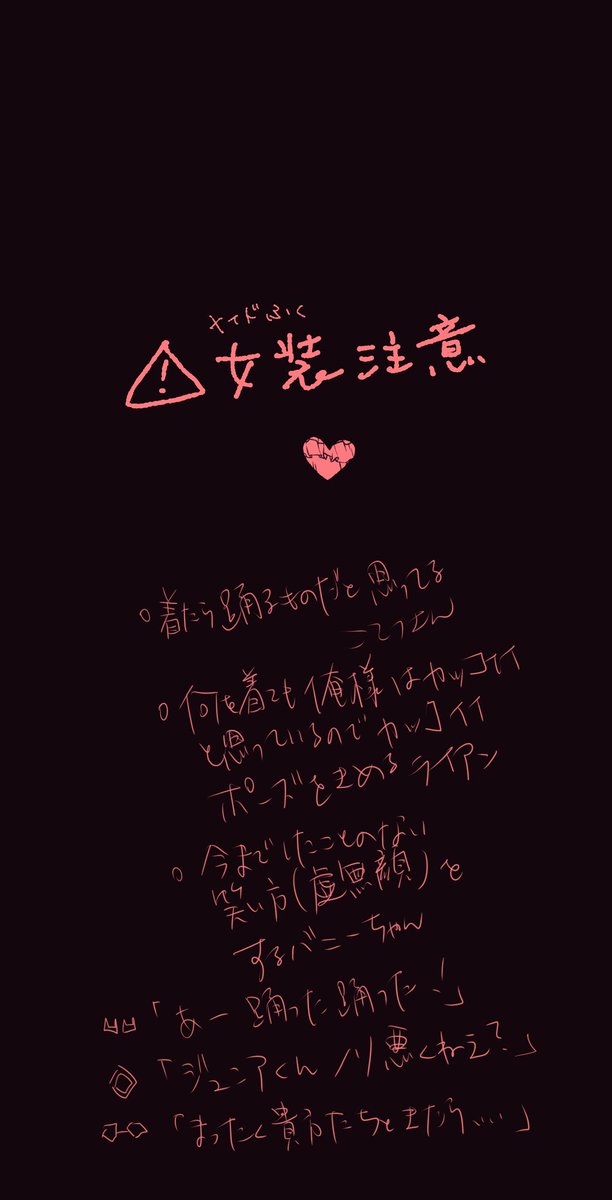 メイドふく
女装注意
○着たら踊るものだと思ってる
こてつさん
○何を着ても俺様はカッコイイ
と思っているのでカッコイイ
ポーズをきめるライアン
○今までしたことのない
笑い方(虚無顔)を
するバニーちゃん
「あー踊った踊った!」
「ジュニアくんノリ悪くねえ?」
「まったく貴方たちときたら...」